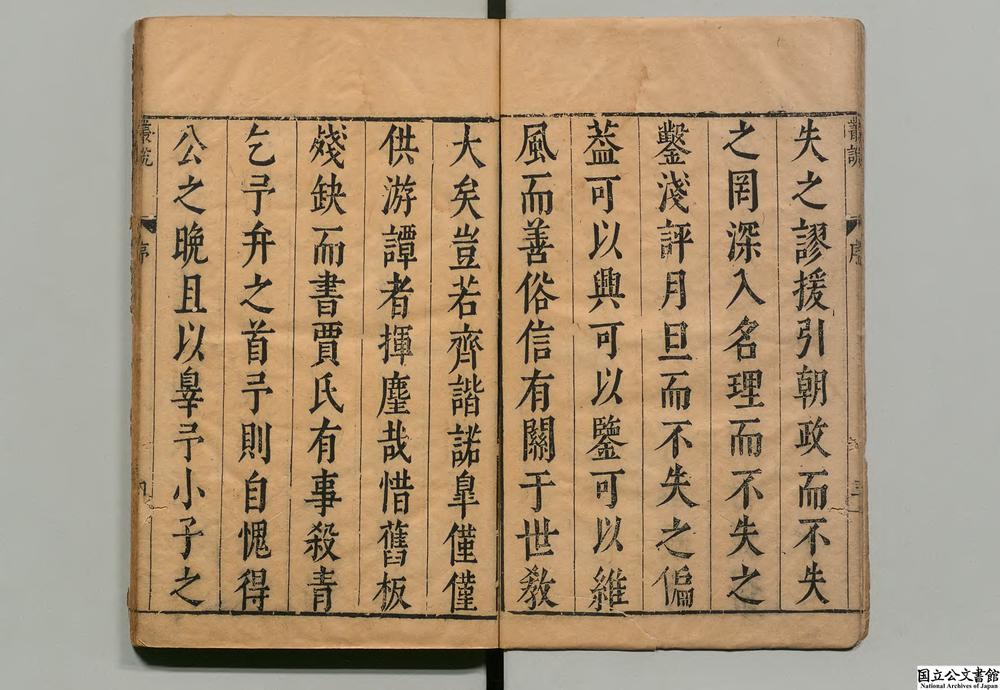 失之謬援引朝政而不失
之罔深入名理而不失之
鑿淺評月旦而不失之偏
葢可以興可以鑒可以維
風而善俗信有關于世教
大矣豈若齊諧諾臯僅僅
供游譚者揮麈哉惜舊板
殘缺而書賈氏有事殺青
乞予弁之首予則自愧得
公之晚且以辠予小子之
叢說
序
三
叢說
序
国立公文書館
National Archives of Japan